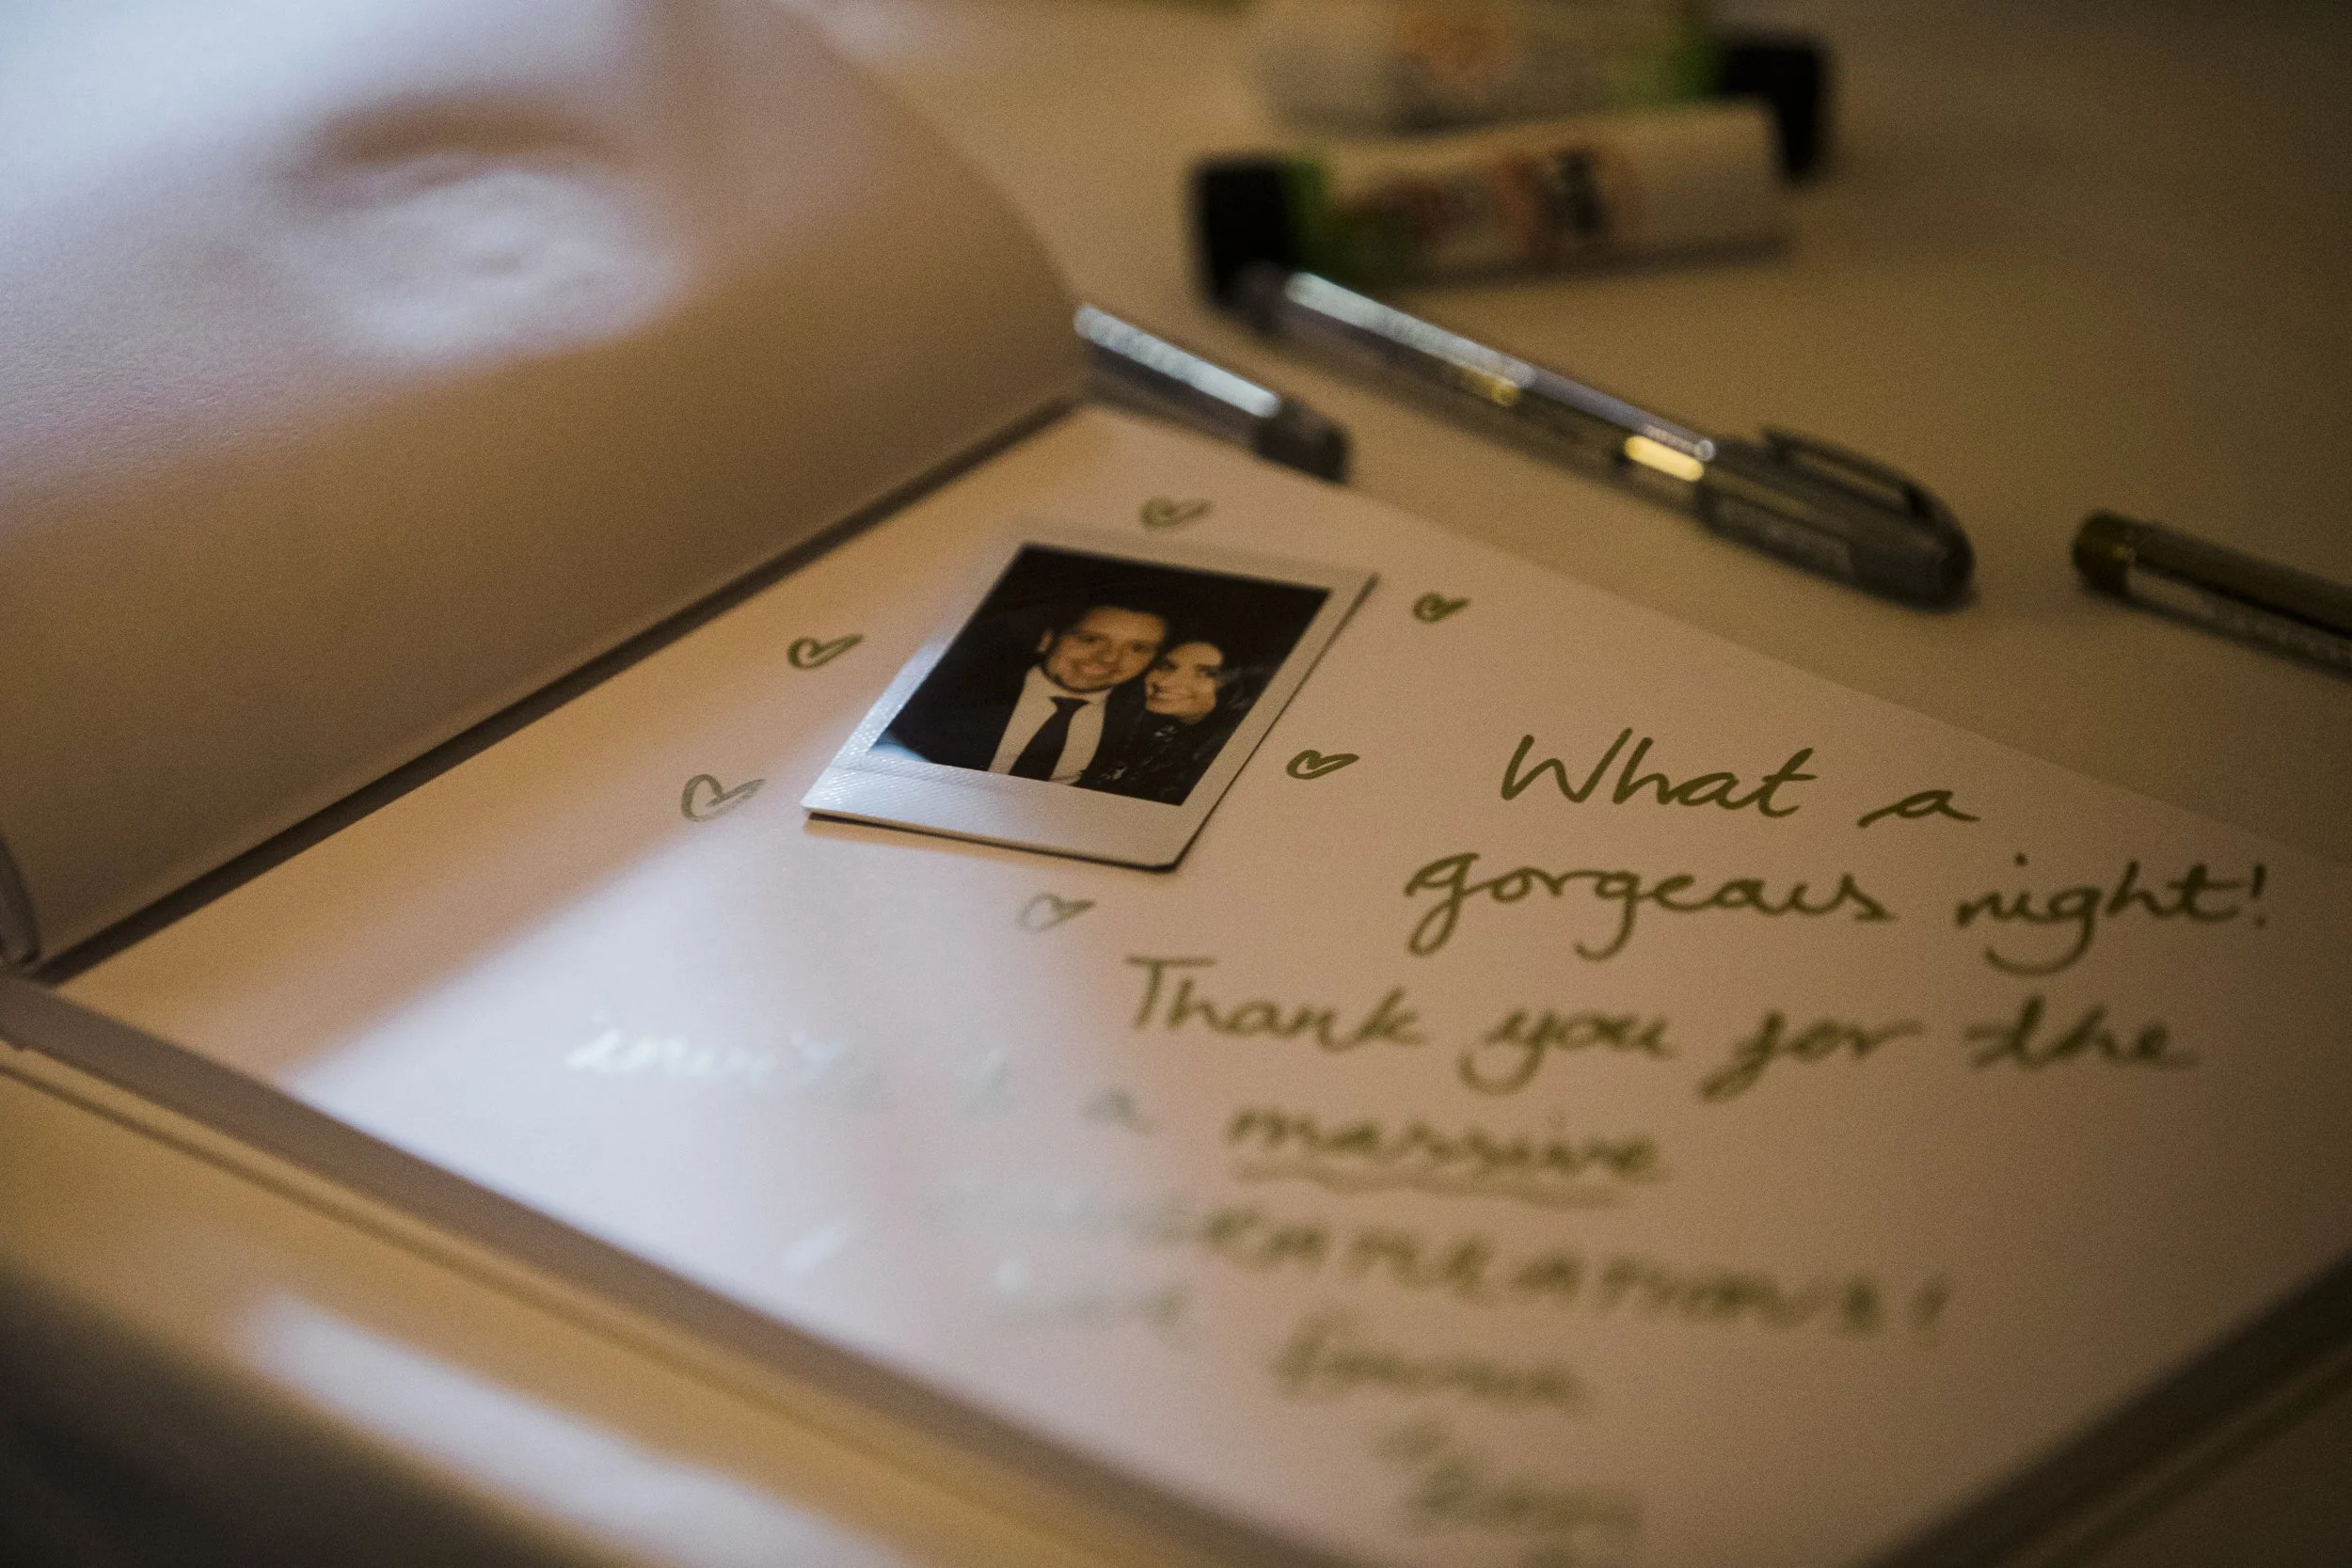 What a
gorgeous night!
Thank you for the
invite & a massive
CONGRATULATIONS!